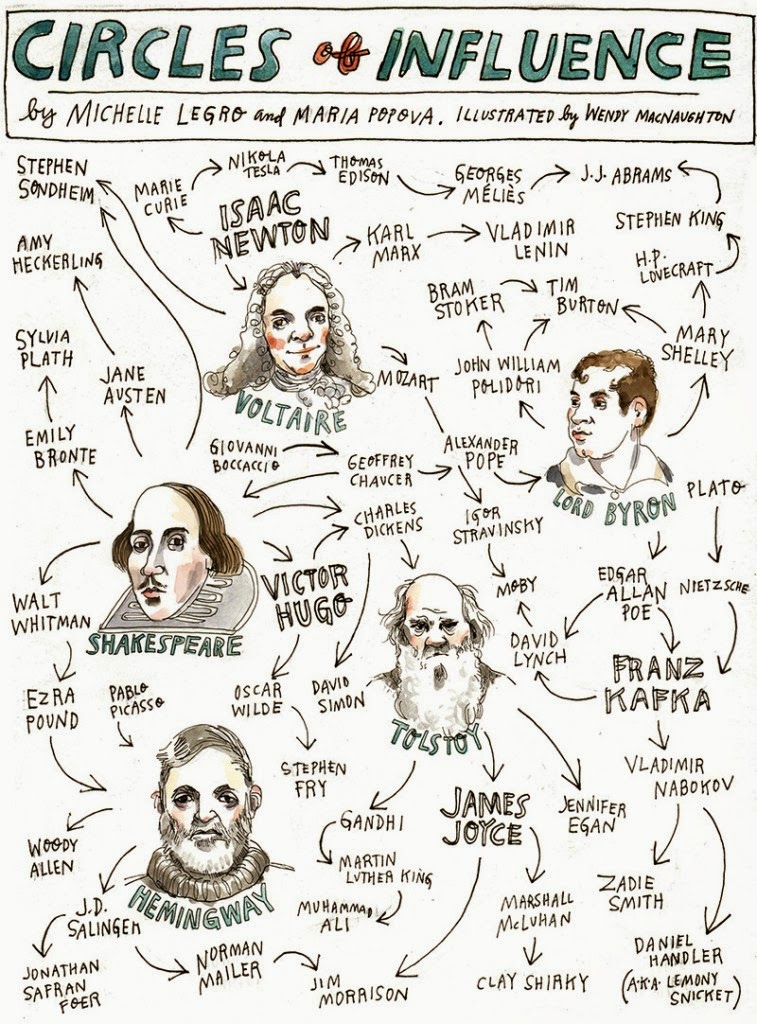 CIRCLES of INFLUENCE
by MICHELLE LEGRO and MARIA POPOVA. ILLUSTRATED by WENDY MACNAUGHTON
STEPHEN
SONDHEIM
MARIE
CURIE
NIKOLA
TESLA
THOMAS
EDISON
GEORGES
MÉLIÈS
J.J. ABRAMS
ISAAC
NEWTON
KARL
MARX
VLADIMIR
LENIN
STEPHEN KING
AMY
HECKERLING
H.P.
LOVECRAFT
BRAM
STOKER
TIM
BURTON
SYLVIA
PLATH
JANE
AUSTEN
MOZART
JOHN WILLIAM
POLIDORI
MARY
SHELLEY
VOLTAIRE
EMILY
BRONTE
GIOVANNI
BOCCACCIO
GEOFFREY
CHAUCER
ALEXANDER
POPE
LORD BYRON
PLATO
CHARLES
DICKENS
IGOR
STRAVINSKY
WALT
WHITMAN
SHAKESPEARE
VICTOR
HUGO
MOBY
EDGAR
ALLAN
POE
NIETZSCHE
DAVID
LYNCH
FRANZ
KAFKA
EZRA
POUND
PABLO
PICASSO
OSCAR
WILDE
DAVID
SIMON
TOLSTOY
STEPHEN
FRY
VLADIMIR
NABOKOV
GANDHI
JAMES
JOYCE
JENNIFER
EGAN
WOODY
ALLEN
MARTIN
LUTHER KING
HEMINGWAY
MUHAMMAD
ALI
MARSHALL
McLUHAN
ZADIE
SMITH
J.D.
SALINGER
JONATHAN
SAFRAN
FOER
NORMAN
MAILER
JIM
MORRISON
CLAY SHIRKY
DANIEL
HANDLER
(A.K.A. LEMONY
SNICKET)